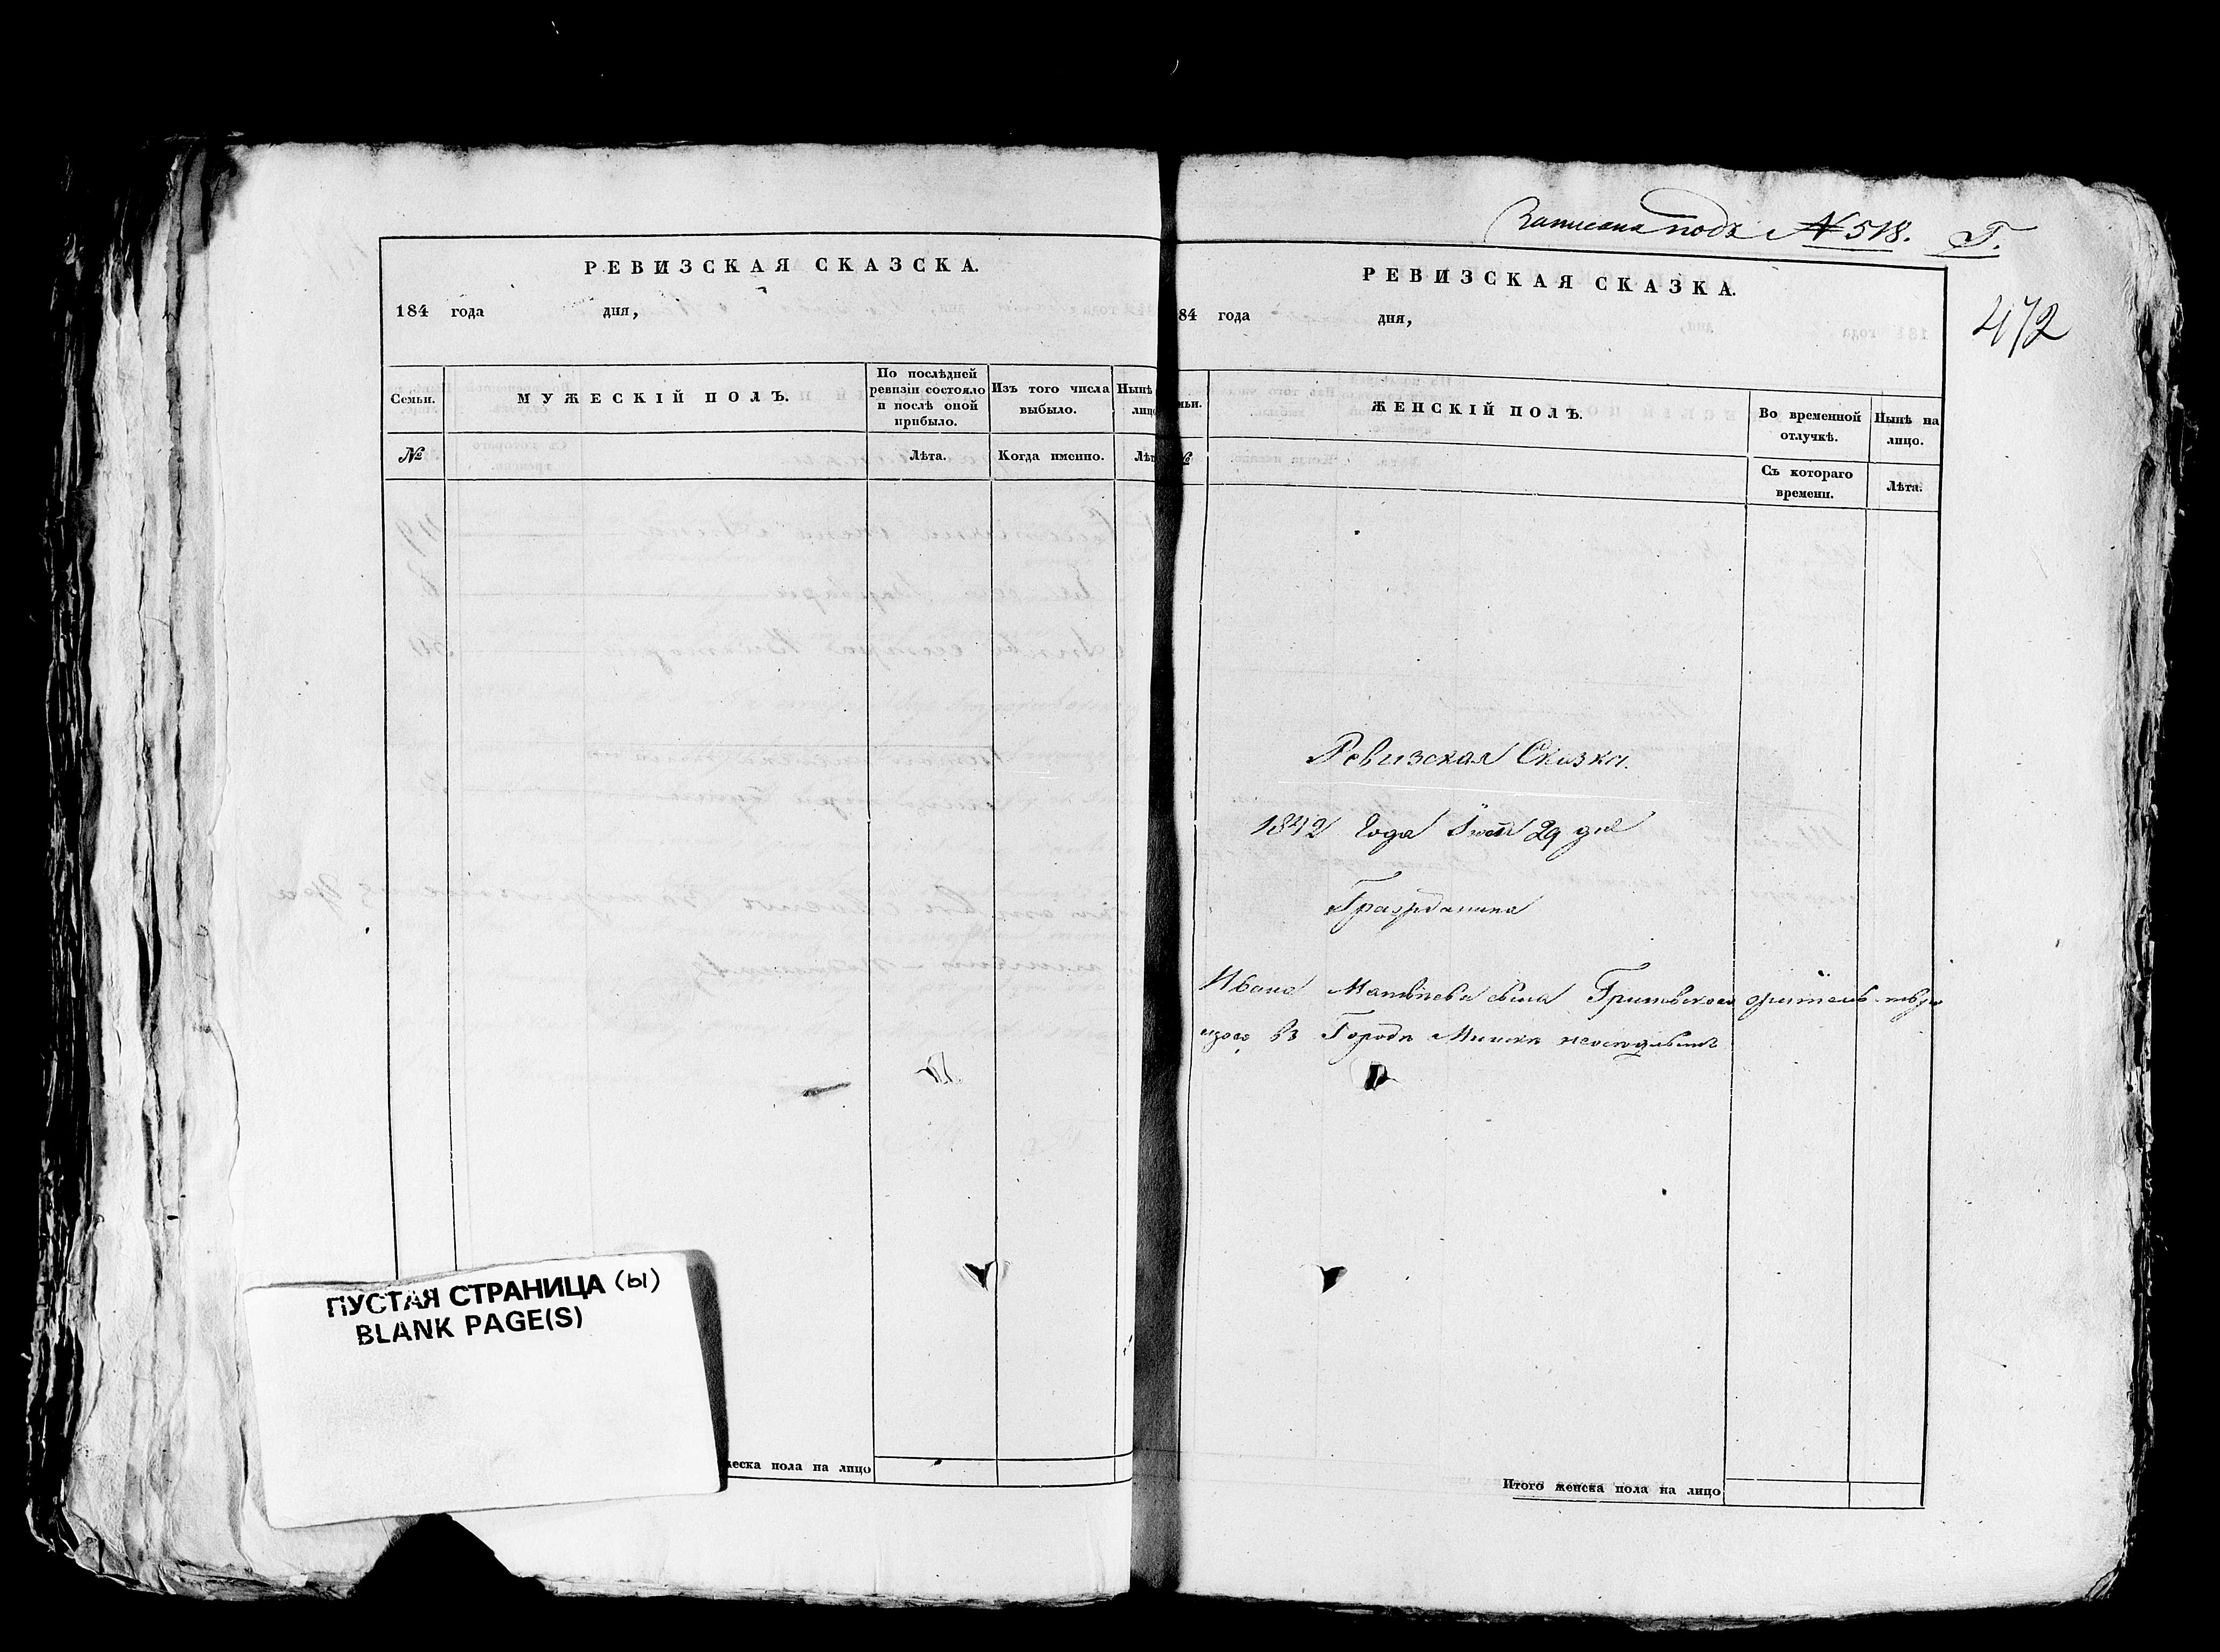 РЕВИЗСКАЯ СКАЗСКА.
184 года дня,
Семьи.
МУЖЕСКІЙ ПОЛЪ.
По послѣдней
ревизіи состояло
и послѣ оной
прибыло.
Изъ того числа
выбыло.
Нынѣ
лицо
№
Лѣта.
Когда именно.
Лѣт
ПУСТАЯ СТРАНИЦА (ы)
BLANK PAGE(S)
жеска пола на лицо
Записана подъ № 518. Г.
472
РЕВИЗСКАЯ СКАЗКА.
84 года дня,
мьи.
ЖЕНСКІЙ ПОЛЪ.
Во временной
отлучкѣ.
Нынѣ на
лицо.
№
Съ котораго
времени.
Лѣта.
Ревизская Сказка.
1842 Года 29 дня
Гражданина
Ивана Матвѣева сына жител
въ Городѣ Минскѣ
Итого женска пола на лицо